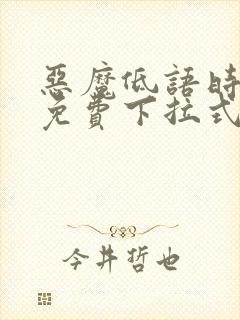 惡魔低語時
免費下拉式
今井哲也